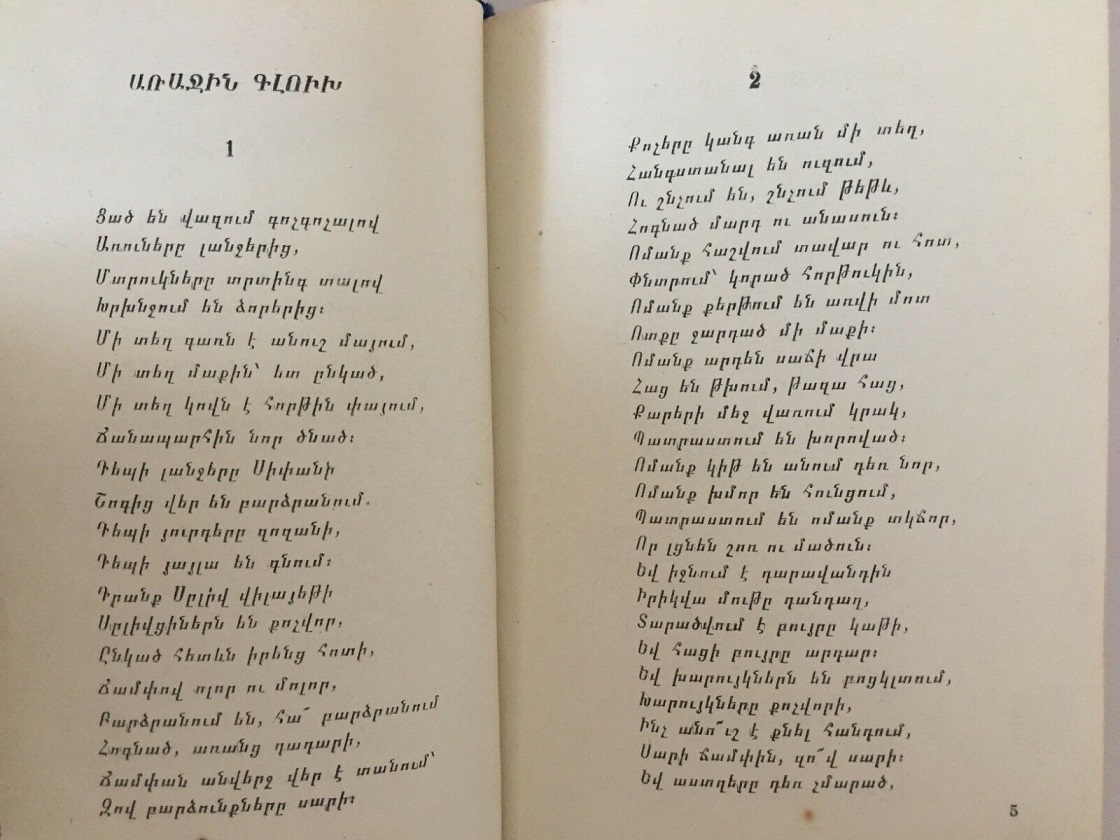 ԱՌԱՋԻՆ ԳԼՈՒԽ
1
Ցած են վազում գոչգոչալով
Առուները լանջերից,
Մտրուկները տրտինգ տալով
Խրխնջում են ձորերից։
Մի տեղ գառն է անուշ մայում,
Մի տեղ մաքին՝ ետ ընկած,
Մի տեղ կովն է հորթին փայում,
Ճանապարհին նոր ծնած։
Դեպի լանջերը Սիփանի
Շոգից վեր են բարձրանում.
Դեպի յուրդերը զոզանի,
Դեպի յայլա են գնում։
Դրանք Սըլիվ վիլայեթի
Սըլիվցիներն են քոչվոր,
Ընկած հետևն իրենց հոտի,
Ճամփով ոլոր ու մոլոր,
Բարձրանում են, հա՜ բարձրանում
Հոգնած, առանց դադարի,
Ճամփան անվերջ վեր է տանում՝
Զով բարձունքները սարի։
2
Քոչերը կանգ առան մի տեղ,
Հանգստանալ են ուզում,
Ու շնչում են, շնչում թեթև,
Հոգնած մարդ ու անասուն։
Ոմանք հաշվում տավար ու հոտ,
Փնտրում՝ կորած հորթուկին,
Ոմանք քերթում են առվի մոտ
Ոտքը ջարդած մի մաքի։
Ոմանք արդեն սաճի վրա
Հաց են թխում, թազա հաց,
Քարերի մեջ վառում կրակ,
Պատրաստում են խորոված։
Ոմանք կիթ են անում դեռ նոր,
Ոմանք խմոր են հունցում,
Պատրաստում են ոմանք տկճոր,
Որ լցնեն շոռ ու մածուն։
Եվ իջնում է դարավանդին
Իրիկվա մութը դանդաղ,
Տարածվում է բույրը կաթի,
Եվ հացի բույրը արդար։
Եվ խարույկներն են բոցկլտում,
Խարույկները քոչվորի,
Ինչ անո՜ւշ է քնել հանդում,
Սարի ճամփին, զո՜վ սարի։
Եվ աստղերը դեռ չմարած,
5